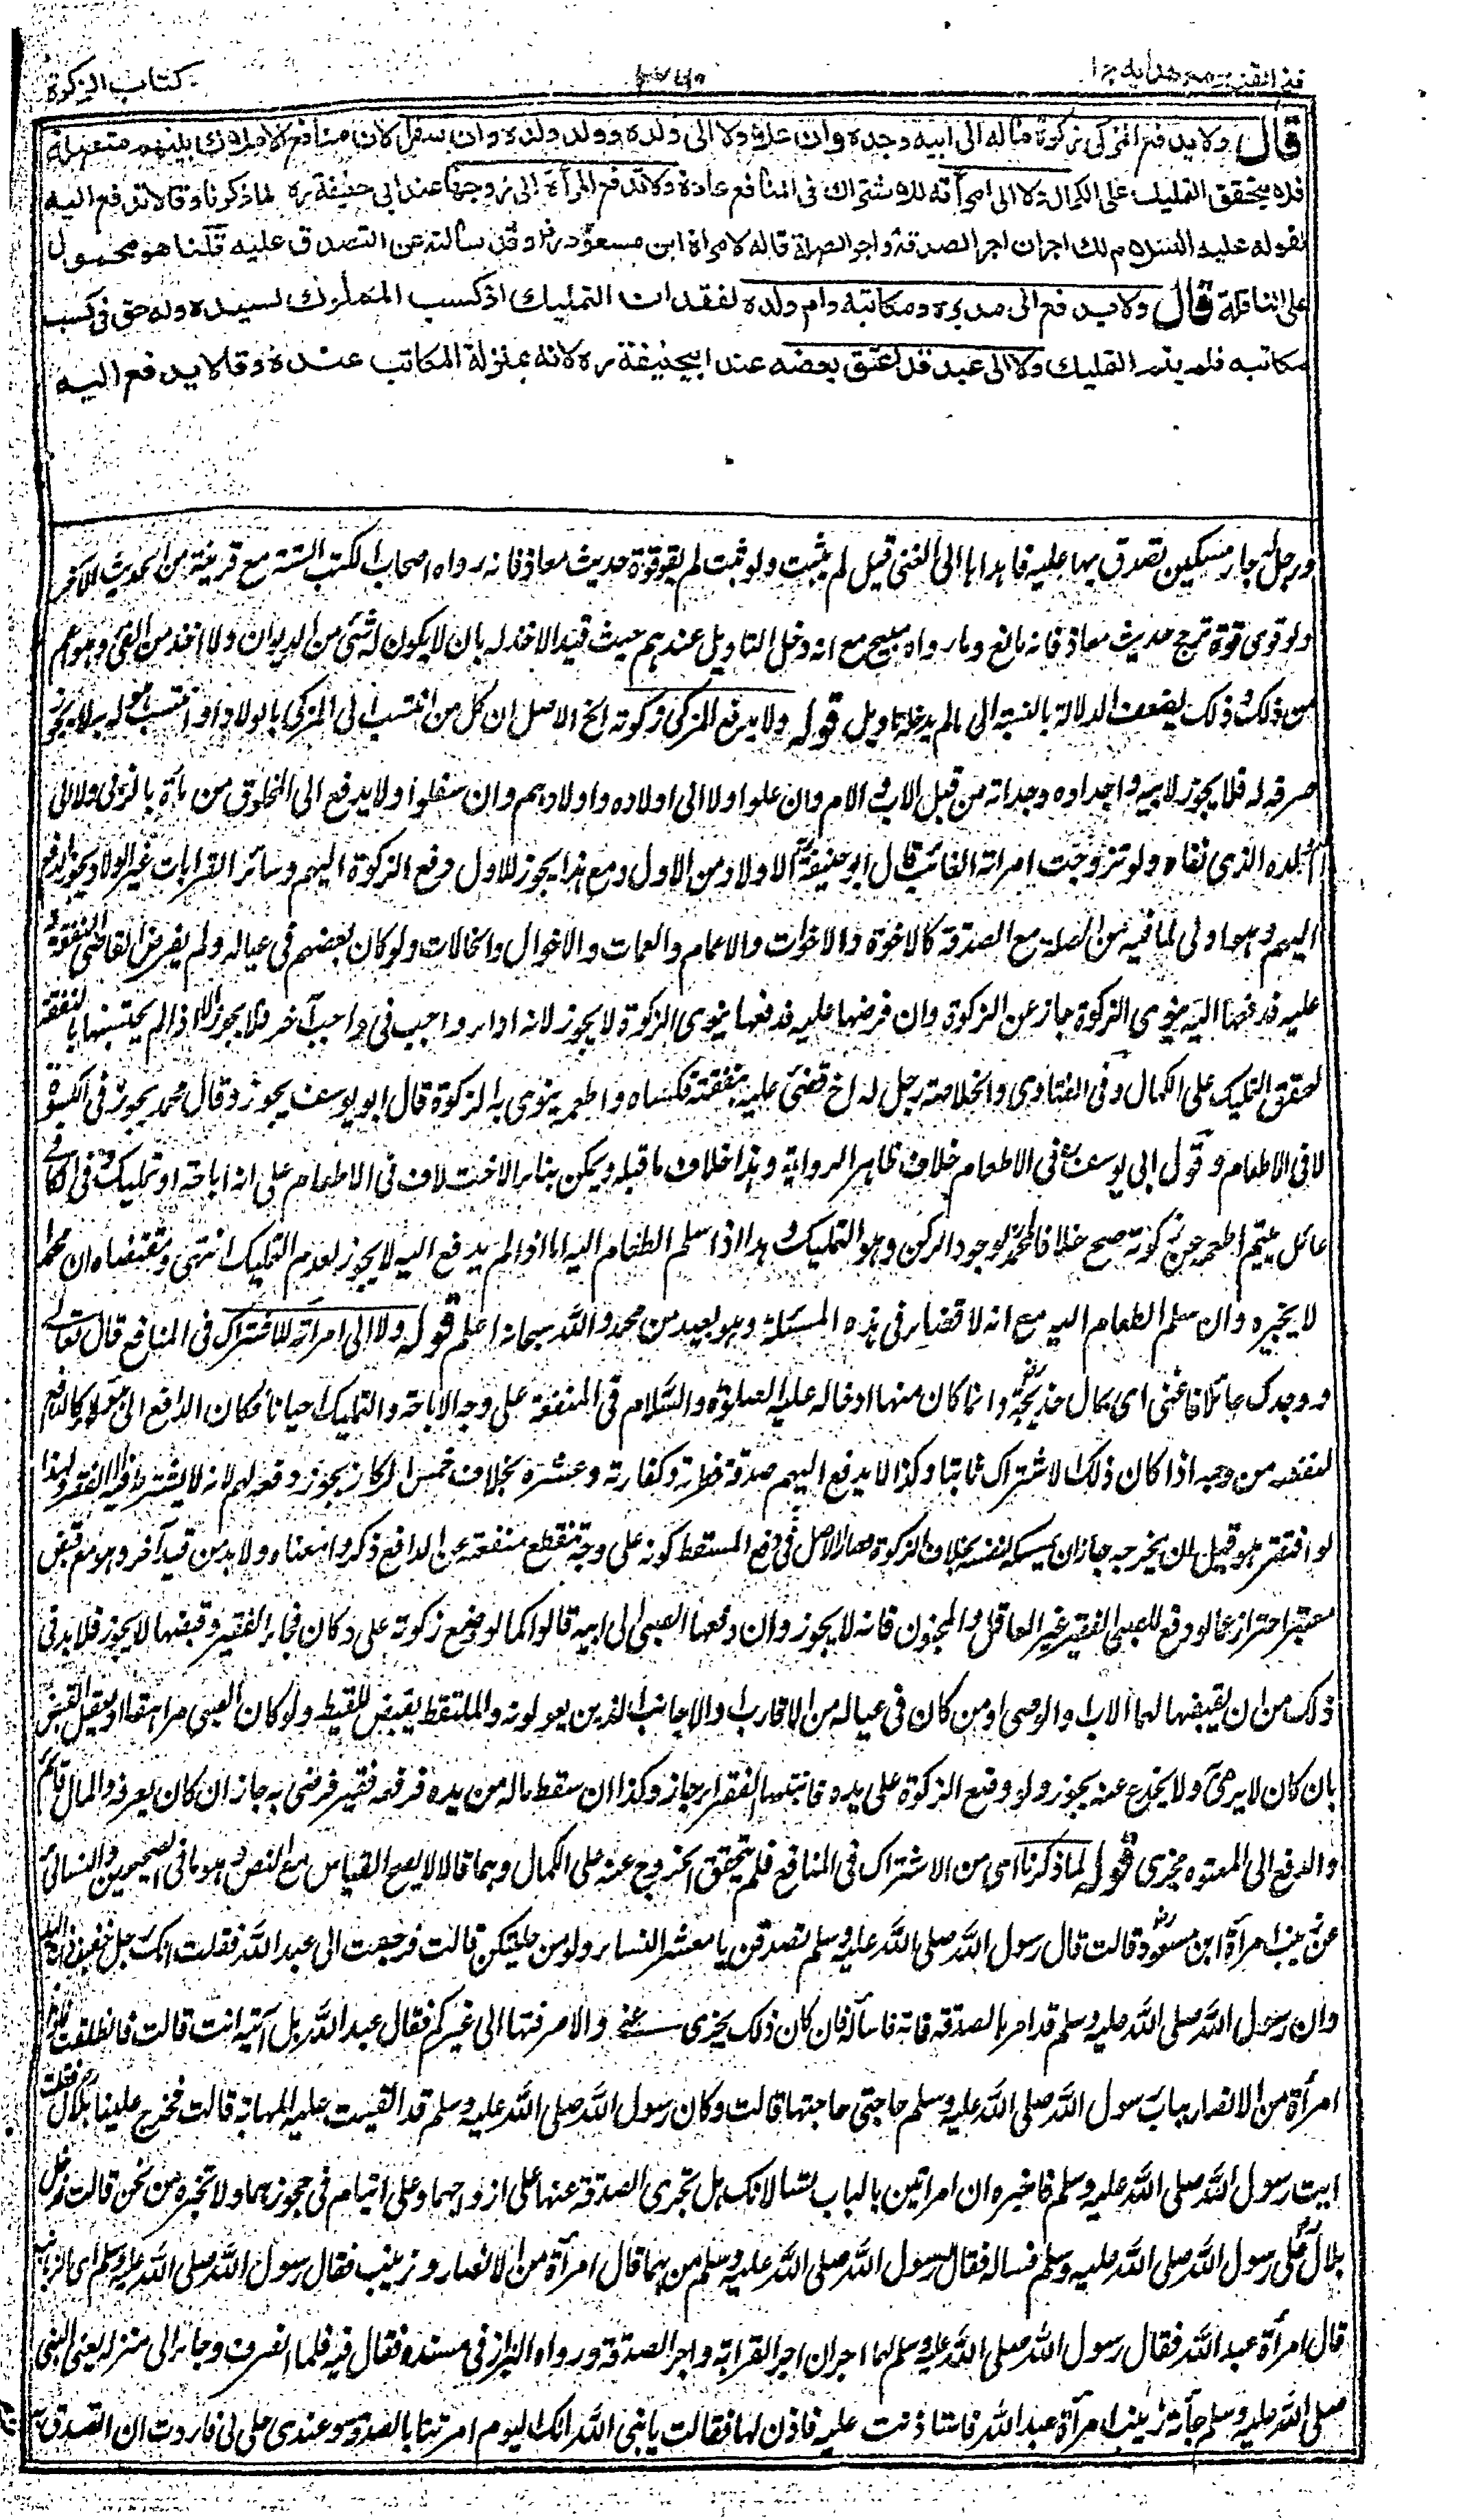 فتح القدير مع هدايه ج ١
كتاب الزكوة
قال ولا يدفع المزكى زكوة ماله الى ابيه وجده وان علا ولا الى ولده وولد ولده وان سفل لان منافع الاملاك بينهم متصلة
فلا يتحقق التمليك على الكمال ولا الى امرأته للاشتراك فى المنافع عادة ولا تدفع المرأة الى زوجها عند ابى حنيفة ره لما ذكرنا وقالا تدفع اليه
لقوله عليه السلام لك اجران اجر الصدقة واجر الصلة قاله لامرأة ابن مسعود رض وقد سألته عن التصدق عليه قلنا هو محمول
على النافلة قال ولا يدفع الى مدبره ومكاتبه وام ولده لفقدان التمليك اذ كسب المملوك لسيده وله حق فى كسب
مكاتبه فلم يتم التمليك ولا الى عبد قد اعتق بعضه عند ابيحنيفة ره لانه بمنزلة المكاتب عنده وقالا يدفع اليه
ورجل له جار مسكين تصدق بها عليه فاهداها الى الغنى قيل لم يثبت ولو ثبت لم يقو قوة حديث معاذ فانه رواه اصحاب الكتب الستة مع قرينة من الحديث الآخر
ولو قوى قوته ترجح حديث معاذ فانه مانع وما رواه مبيح مع انه دخل التاويل عندهم حيث قيد الاخذ له بان لا يكون له شئ من الديوان ولا اخذ من الفئ وهو اعم
من ذلك وذلك يضعف الدلالة بالنسبة الى ما لم يدخله تاويل قوله ولا يدفع المزكى زكوته الخ الاصل ان كل من انتسب الى المزكى بالولاد او انتسب هو له به لا يجوز
صرفه له فلا يجوز لابيه واجداده وجداته من قبل الاب والام وان علوا ولا الى اولاده واولادهم وان سفلوا ولا يدفع الى المخلوق من مائه بالزنى ولا الى
ولده الذى نفاه ولو تزوجت امرأة الغائب قال ابو حنيفة الاولاد من الاول ومع هذا يجوز للاول دفع الزكوة اليهم وسائر القرابات غير الولاد يجوز الدفع
اليهم وهو اولى لما فيه من الصلة مع الصدقة كالاخوة والاخوات والاعمام والعمات والاخوال والخالات ولو كان بعضهم فى عياله ولم يفرض القاضى النفقة له
عليه فدفعها اليه ينوى الزكوة جاز عن الزكوة وان فرضها عليه فدفعها ينوى الزكوة لا يجوز لانه اداء واجب فى واجب آخر فلا يجوز الا اذا لم يحتسبها بالنفقة
لتحقق التمليك على الكمال وفى الفتاوى والخلاصة رجل له اخ قضى عليه بنفقته فكساه واطعمه ينوى به الزكوة قال ابو يوسف يجوز وقال محمد يجوز فى الكسوة
لا فى الاطعام وقول ابى يوسف فى الاطعام خلاف ظاهر الرواية وهذا خلاف ما قبله ويمكن بناء الاختلاف فى الاطعام على انه اباحة او تمليك وفى الكافى
عائل يتيم اطعمه عن زكوته صح خلافا لمحمد لوجود الركن وهو التمليك وهذا اذا سلم الطعام اليه اما اذا لم يدفع اليه لا يجوز لعدم التمليك انتهى ومقتضاه ان محمدا
لا يجيزه وان سلم الطعام اليه مع انه لا قضاء فى هذه المسئلة وهو بعيد من محمد والله سبحانه اعلم قوله ولا الى امرأته للاشتراك فى المنافع قال تعالى
ووجدك عائلا فاغنى اى بمال خديجة وانما كان منها ادخاله عليه الصلوة والسلام فى المنفعة على وجه الاباحة والتمليك احيانا فكان الدافع الى هؤلاء كالدافع
لنفسه من وجه اذا كان ذلك الاشتراك ثابتا وكذا لا يدفع اليهم صدقة فطره وكفارته وعشره بخلاف خمس الركاز يجوز دفعه لهم لانه لا يشترط فيه الا الفقر ولهذا
لو افتقر هو قبل ان يخرجه جاز ان يمسكه لنفسه بخلاف الزكوة فصار الاصل فى دفع المسقط كونه على وجه تنقطع منفعته عن الدافع ذكروا معناه ولا بد من قيد آخر وهو مع قبض
معتبر احتراز عما لو دفع للصبى الفقير غير العاقل والمجنون فانه لا يجوز وان دفعها الصبى الى ابيه قالوا كما لو وضع زكوته على دكان فجاء الفقير وقبضها لا يجوز فلا بد فى
ذلك من ان يقبضها لهما الاب والوصى او من كان فى عياله من الاقارب والاجانب الذين يعولونه والملتقط يقبض للقيط ولو كان الصبى مراهقا او يعقل القبض
بان كان لا يرمى ولا يخدع عنه يجوز ولو وضع الزكوة على يده فانتهبها الفقراء جاز وكذا ان سقط ماله من يده فرفعه فقير فرضى به جاز ان كان يعرفه والمال قائم
والدفع الى المعتوه مجزى قوله لما ذكرنا اى من الاشتراك فى المنافع فلم يتحقق الخروج عنه على الكمال وهما قالا لا يصح القياس مع النص وهو ما فى الصحيحين والنسائى
عن زينب امرأة ابن مسعود رض قالت قال رسول الله صلى الله عليه وسلم تصدقن يا معشر النساء ولو من حليكن قالت فرجعت الى عبد الله فقلت انك رجل خفيف ذات اليد
وان رسول الله صلى الله عليه وسلم قد امر بالصدقة فاته فاسأله فان كان ذلك يجزى عنى والا صرفتها الى غيركم فقال عبد الله بل آتيه انت قالت فانطلقت فاذا
امرأة من الانصار بباب رسول الله صلى الله عليه وسلم حاجتى حاجتها قالت وكان رسول الله صلى الله عليه وسلم قد القيت عليه المهابة قالت فخرج علينا بلال فقلت
ايت رسول الله صلى الله عليه وسلم فاخبره ان امرأتين بالباب تسألانك هل تجزى الصدقة عنها على ازواجهما وعلى ايتام فى حجورهما ولا تخبره من نحن قالت فدخل
بلال على رسول الله صلى الله عليه وسلم فساله فقال رسول الله صلى الله عليه وسلم من هما قال امرأة من الانصار وزينب فقال رسول الله صلى الله عليه وسلم اى الزيانب
قال امرأة عبد الله فقال رسول الله صلى الله عليه وسلم لهما اجران اجر القرابة واجر الصدقة ورواه البزاز فى مسنده فقال فيه فلما انصرف وجاء الى منزله يعنى النبى
صلى الله عليه وسلم جائه زينب امرأة عبد الله فاستاذنت عليه فاذن لها فقالت يا نبى الله انك اليوم امرتنا بالصدقة وعندى حلى لى فاردت ان اتصدق به